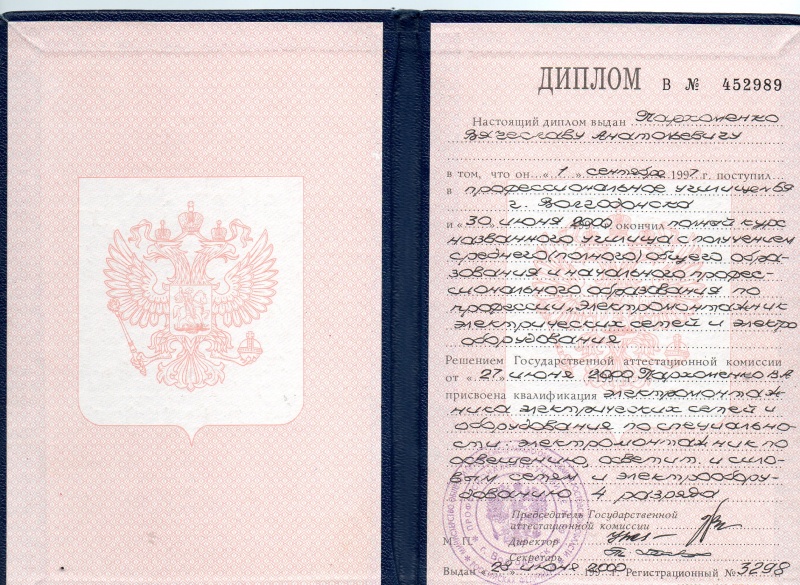 ДИПЛОМ В № 452989
Настоящий диплом выдан Пархоменко
Вячеславу Анатольевичу
в том, что он «1» сентября 1997 г. поступил
в профессиональное училище № 69
г. Волгодонска
и «30» июня 2000 окончил полный курс
названного училища с получением
среднего (полного) общего обра-
зования и начального профес-
сионального образования по
профессии „Электромонтажник
электрических сетей и электро
оборудования
Решением Государственной аттестационной комиссии
от «27» июня 2000 Пархоменко В.А
присвоена квалификация электромонтаж-
ника электрических сетей и
оборудования по специально-
сти: электромонтажник по
освещению, осветит. и сило-
вым сетям и электрообору-
дованию 4 разряда
Председатель Государственной
аттестационной комиссии
М. П. Директор
Секретарь
Выдан «29» июня 2000 г. Регистрационный № 3298